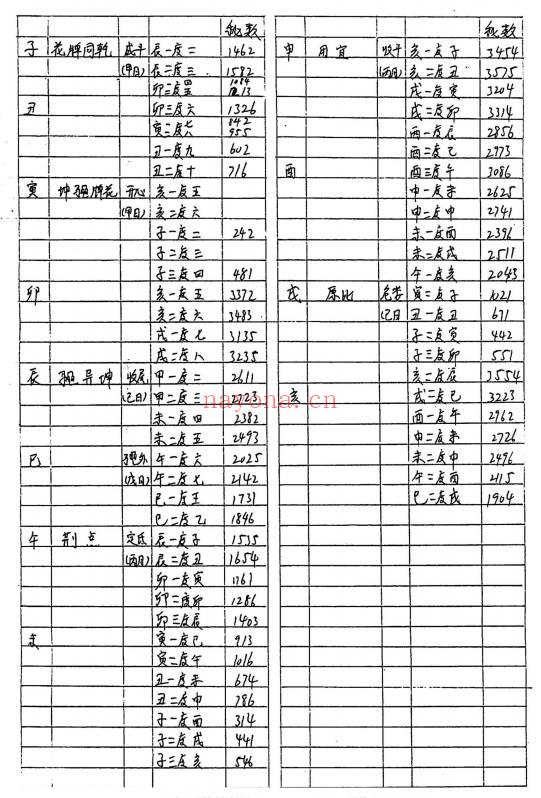 秘数
子 花牌同乾 成平 辰一度二 1462
(甲日) 辰二度三 1582
卯三度四 1084
13
丑 卯三度六 1326
寅二度七八 842 955
丑一度九 602
丑二度十 716
寅 坤 牌花 开心 亥一度五
(甲日) 亥二度六
子一度二 242
子二度三
子三度四 481
卯 亥一度五 3372
亥二度六 3483
戌一度七 3135
戌二度八 3235
辰 异坤 收尾 申一度二 2611
(己日) 申二度三 2723
未一度四 2382
未二度五 2493
巳 午一度六 2025
(戊日) 午二度七 2142
巳一度 1731
巳二度 1846
午 荆点 定氐 辰一度子 1535
(丙日) 辰二度丑 1654
卯一度寅 1161
卯二度卯 1286
卯三度辰 1403
寅一度巳 913
寅二度午 1016
丑一度未 674
丑二度申 786
子一度酉 314
子二度戌 441
子三度亥 546
秘数
申 用宜 收平 亥一度子 3454
(丙日) 亥二度丑 3575
戌一度寅 3204
戌二度卯 3314
酉一度辰 2856
酉二度巳 2973
酉 酉三度午 3086
申一度未 2625
申二度申 2741
未一度酉 2396
未二度戌 2511
午一度亥 2043
戌 原比 寅二度子 1021
(己日) 丑一度丑 671
子二度寅 442
子三度卯 551
亥二度辰 3554
亥 戌二度巳 3223
酉一度午 2962
申二度未 2726
未二度申 2496
午二度酉 2115
巳二度戌 1904
nayona.cn